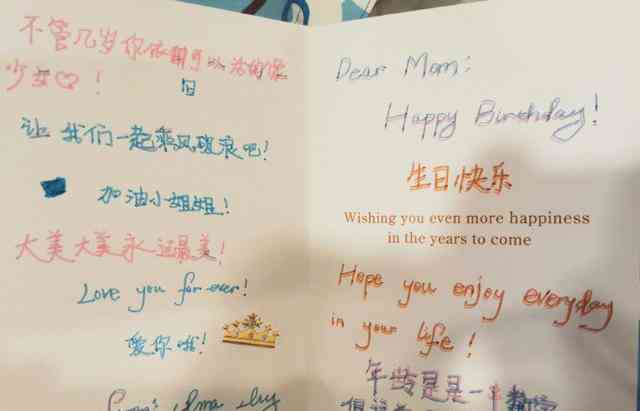 不管几岁你依旧可以活的像
少女♡！
旧
让我们一起乘风破浪吧！
加油小姐姐！
大美大美永远最美！
Love you for ever!
爱你哦！
From:
Dear Mom:
Happy Birthday!
生日快乐
Wishing you even more happiness
in the years to come
Hope you enjoy everyday
in your life!
年龄是是一